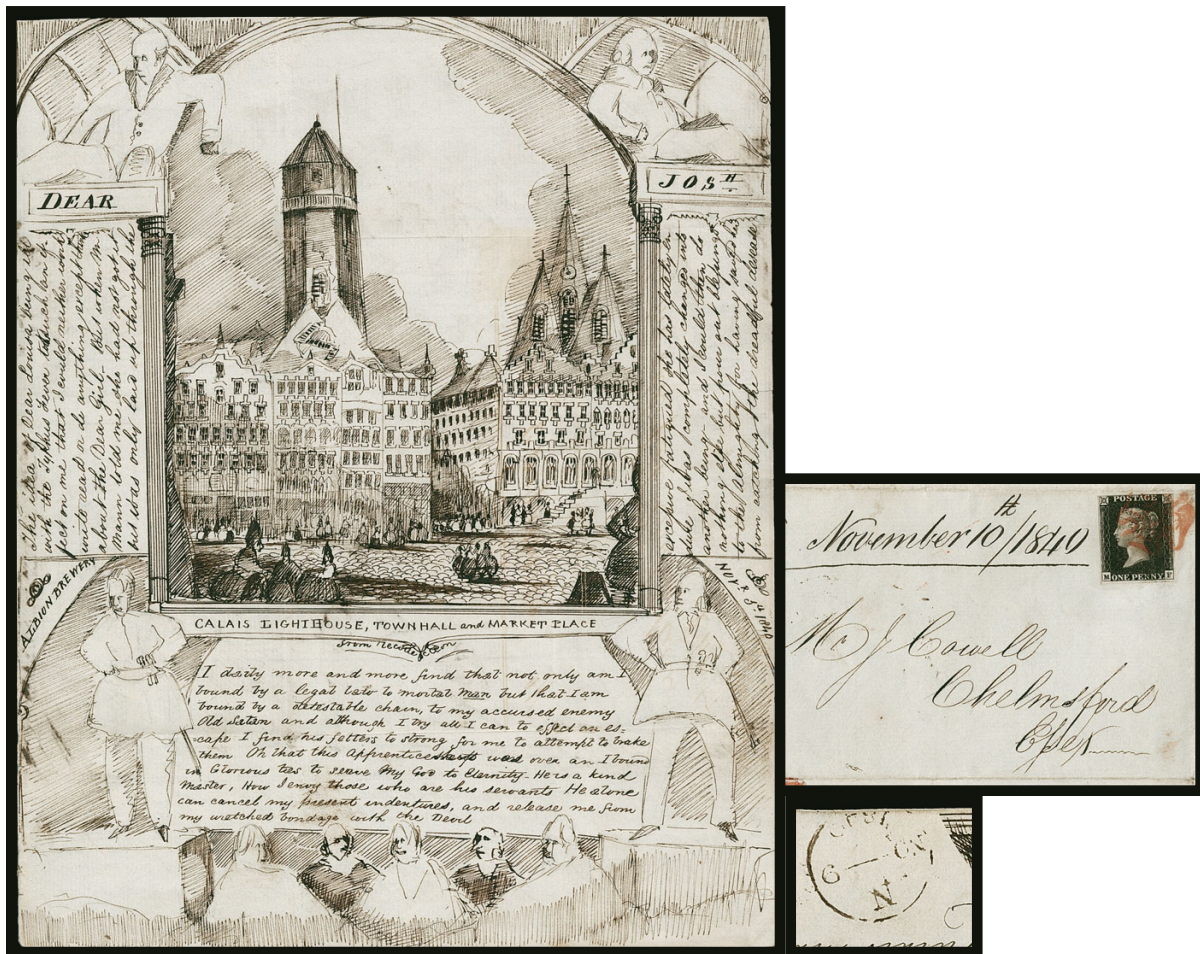 DEAR
JOSH
This idea of Dear Louisa being ill
with the Typhus fever took such an ef-
fect on me that I could neither work
write read or do anything except think
about the Dear Girl. But when Mr
Mann told me she had not got it
but was only laid up through the
excessive fatigue she has lately en-
dured I was completely changed into
another being and could then do
nothing else but pour out
to the Almighty for having saved her
from catching the dreadful disease
ALBION BREWERY
NOVR 1840
CALAIS LIGHTHOUSE, TOWNHALL and MARKET PLACE
from
I daily more and more find that not only am I
bound by a legal tato to mortal Man but that I am
bound by a detestable chain, to my accursed enemy
Old Satan and although I try all I can to effect an es-
cape I find his fetters to strong for me to attempt to brake
them Oh that this Apprenticeship was over an I bound
in Glorious ties to serve My God to Eternity - He is a kind
Master, How I envy those who are his servants He alone
can cancel my present indentures, and release me from
my wretched bondage with the Devil
November 10th/1840
POSTAGE
ONE PENNY
Mr J Cowell
Chelmsford
Essex
6
N